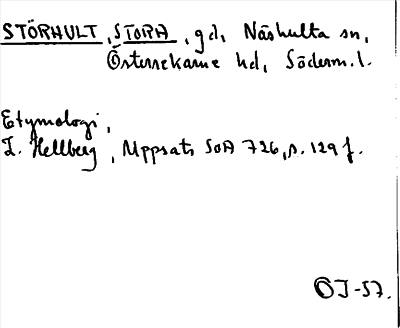 STÖRHULT, STORA, gd, Näshulta sn,
Österrekarne hd, Söderm. l.
Etymologi,
L. Hellberg, Uppsats SOA 726, s. 129 f.
OJ-57.